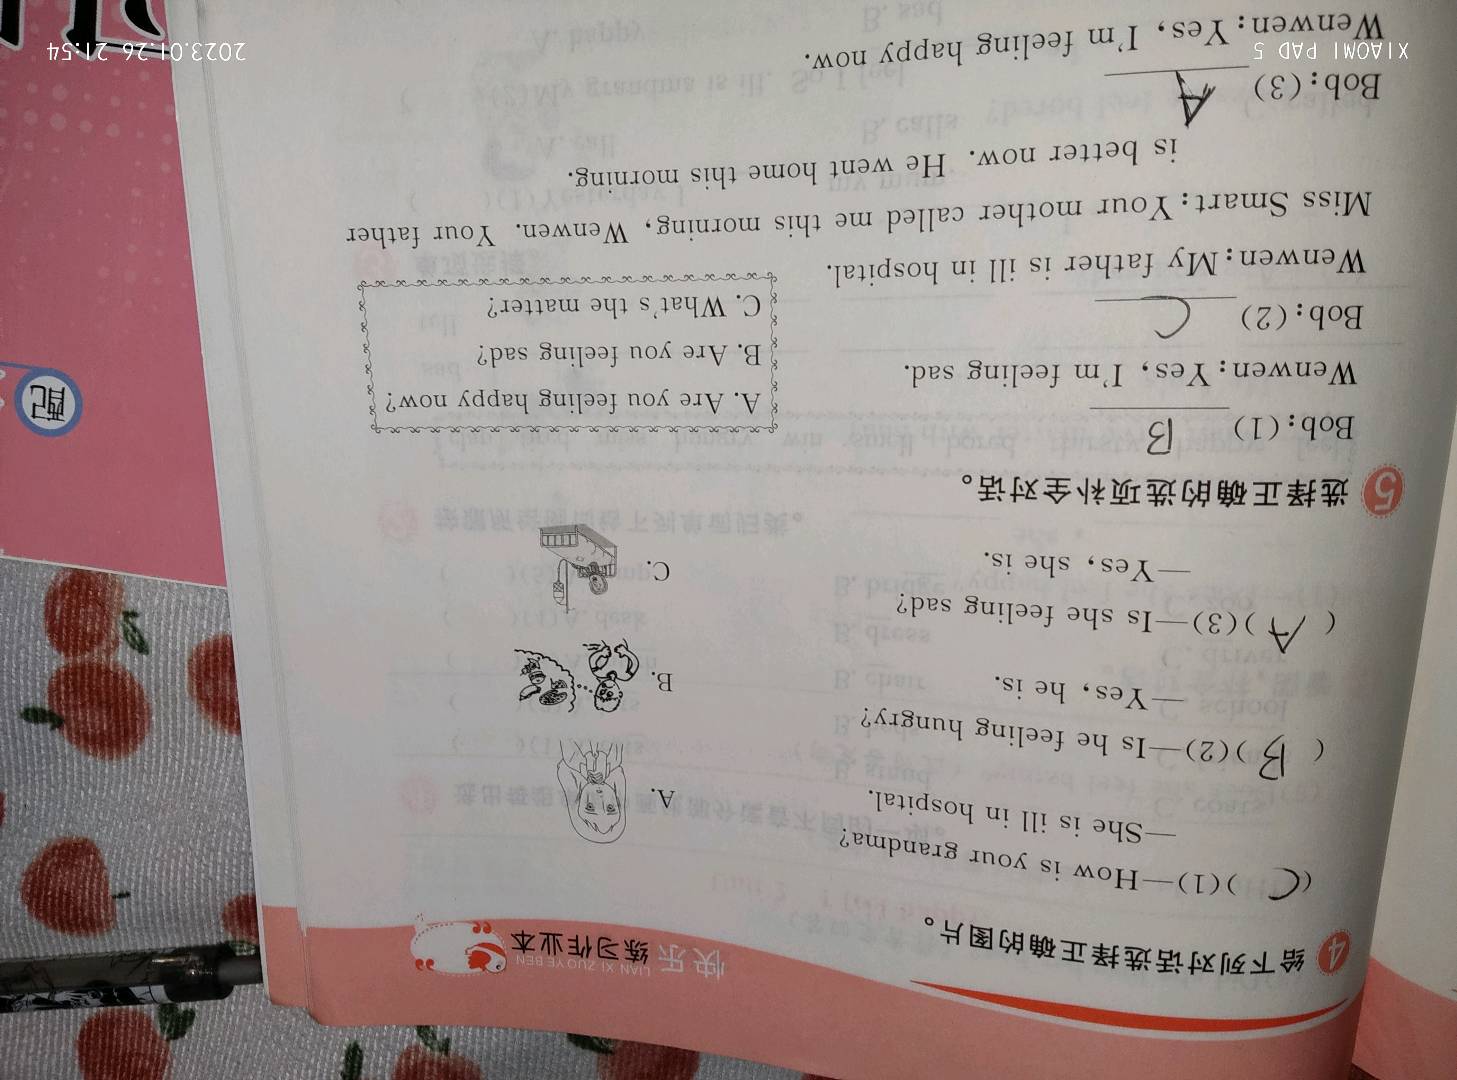 快乐 练习作业本
LIAN XI ZUO YE BEN
4 给下列对话选择正确的图片。
( C )(1)—How is your grandma?
—She is ill in hospital.
( B )(2)—Is he feeling hungry?
—Yes, he is.
( A )(3)—Is she feeling sad?
—Yes, she is.
A.
B.
C.
5 选择正确的选项补全对话。
Bob:(1) B
Wenwen:Yes, I'm feeling sad.
Bob:(2) C
Wenwen:My father is ill in hospital.
Miss Smart:Your mother called me this morning, Wenwen. Your father
is better now. He went home this morning.
Bob:(3) A
Wenwen:Yes, I'm feeling happy now.
A. Are you feeling happy now?
B. Are you feeling sad?
C. What's the matter?
配
XIAOMI PAD 5
2023.01.26 21:54